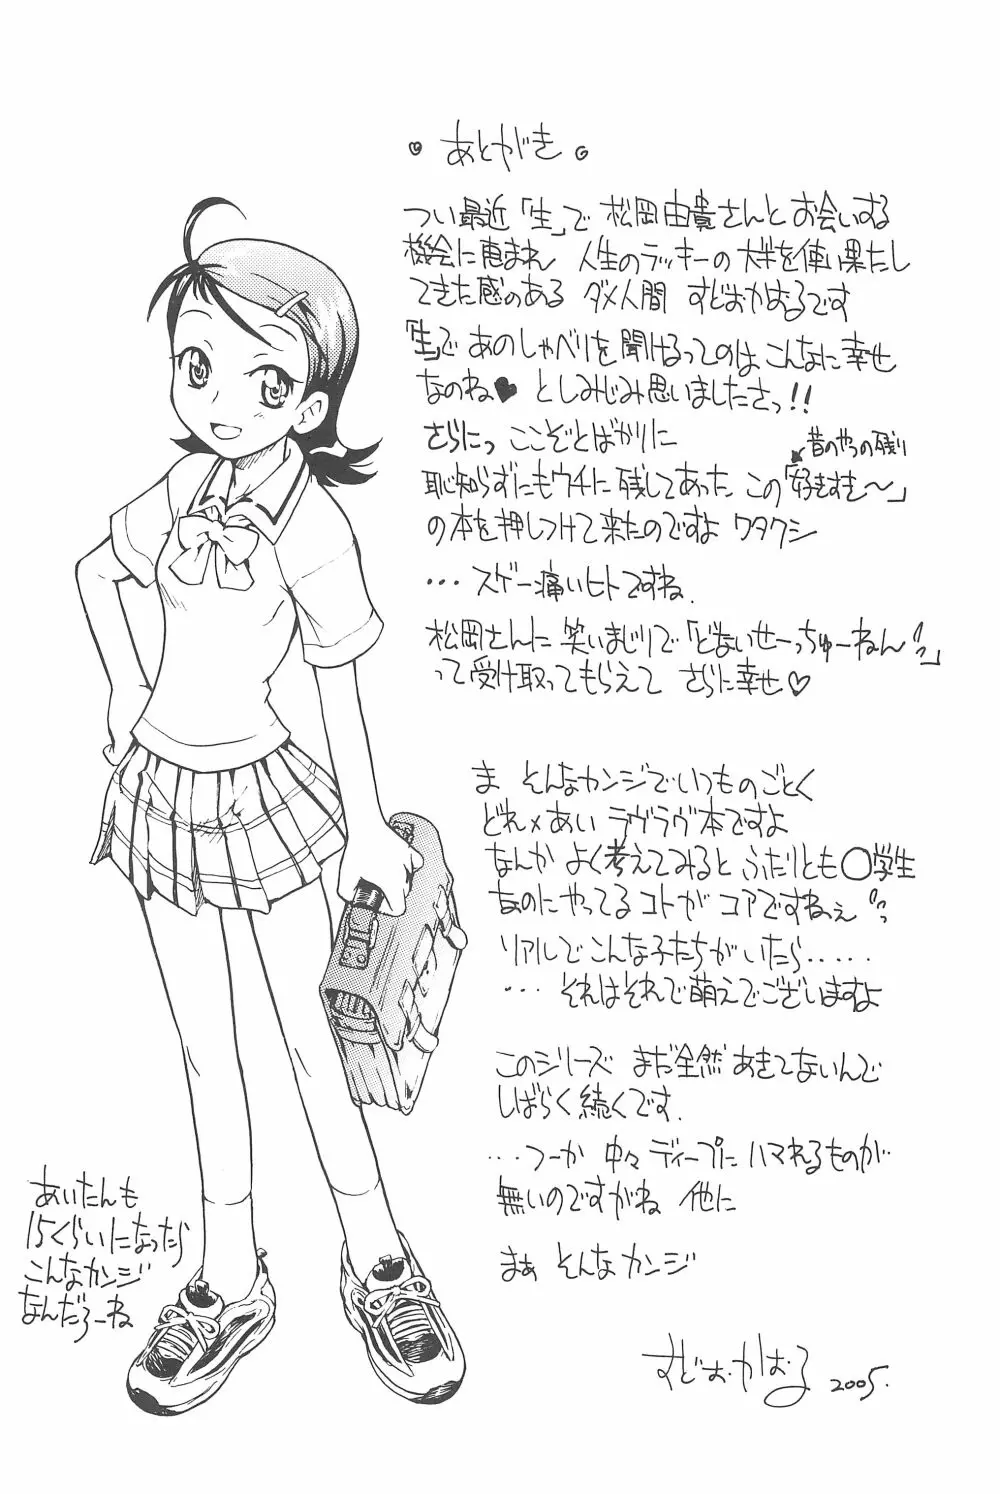 あとがき
つい最近「生」で 松岡由貴さんとお会いする
機会に恵まれ 人生のラッキーの大半を使い果たし
てきた感のある ダメ人間 すどおかおるです
「生」で あのしゃべりを聞けるってのは こんなに幸せ
なのね♥ としみじみ思いましたさっ!!
さらにっ ここぞとばかりに
昔のやつの残り
恥知らずにもウチに残してあった この「好きすき〜」
の本を押しつけて来たのですよ ワタクシ
・・・スゲー痛いヒトですね.
松岡さんに 笑いまじりで「どないせーっちゅーねん」
って受け取ってもらえて さらに幸せ♡
ま そんなカンジでいつものごとく
どれみ×あい ラヴラヴ本ですよ
なんか よく考えてみると ふたりとも〇学生
なのにやってるコトが コアですねぇ
リアルでこんな子たちがいたら.....
... それはそれで萌えでございますよ
このシリーズ まだ全然あきてないんで
しばらく続くです.
...つーか 中々 ディープにハマれるものが
無いのですがね 他に
まぁ そんなカンジ
あいたんも
15くらいになったら
こんなカンジ
なんだろーね
すどおかおる 2005.